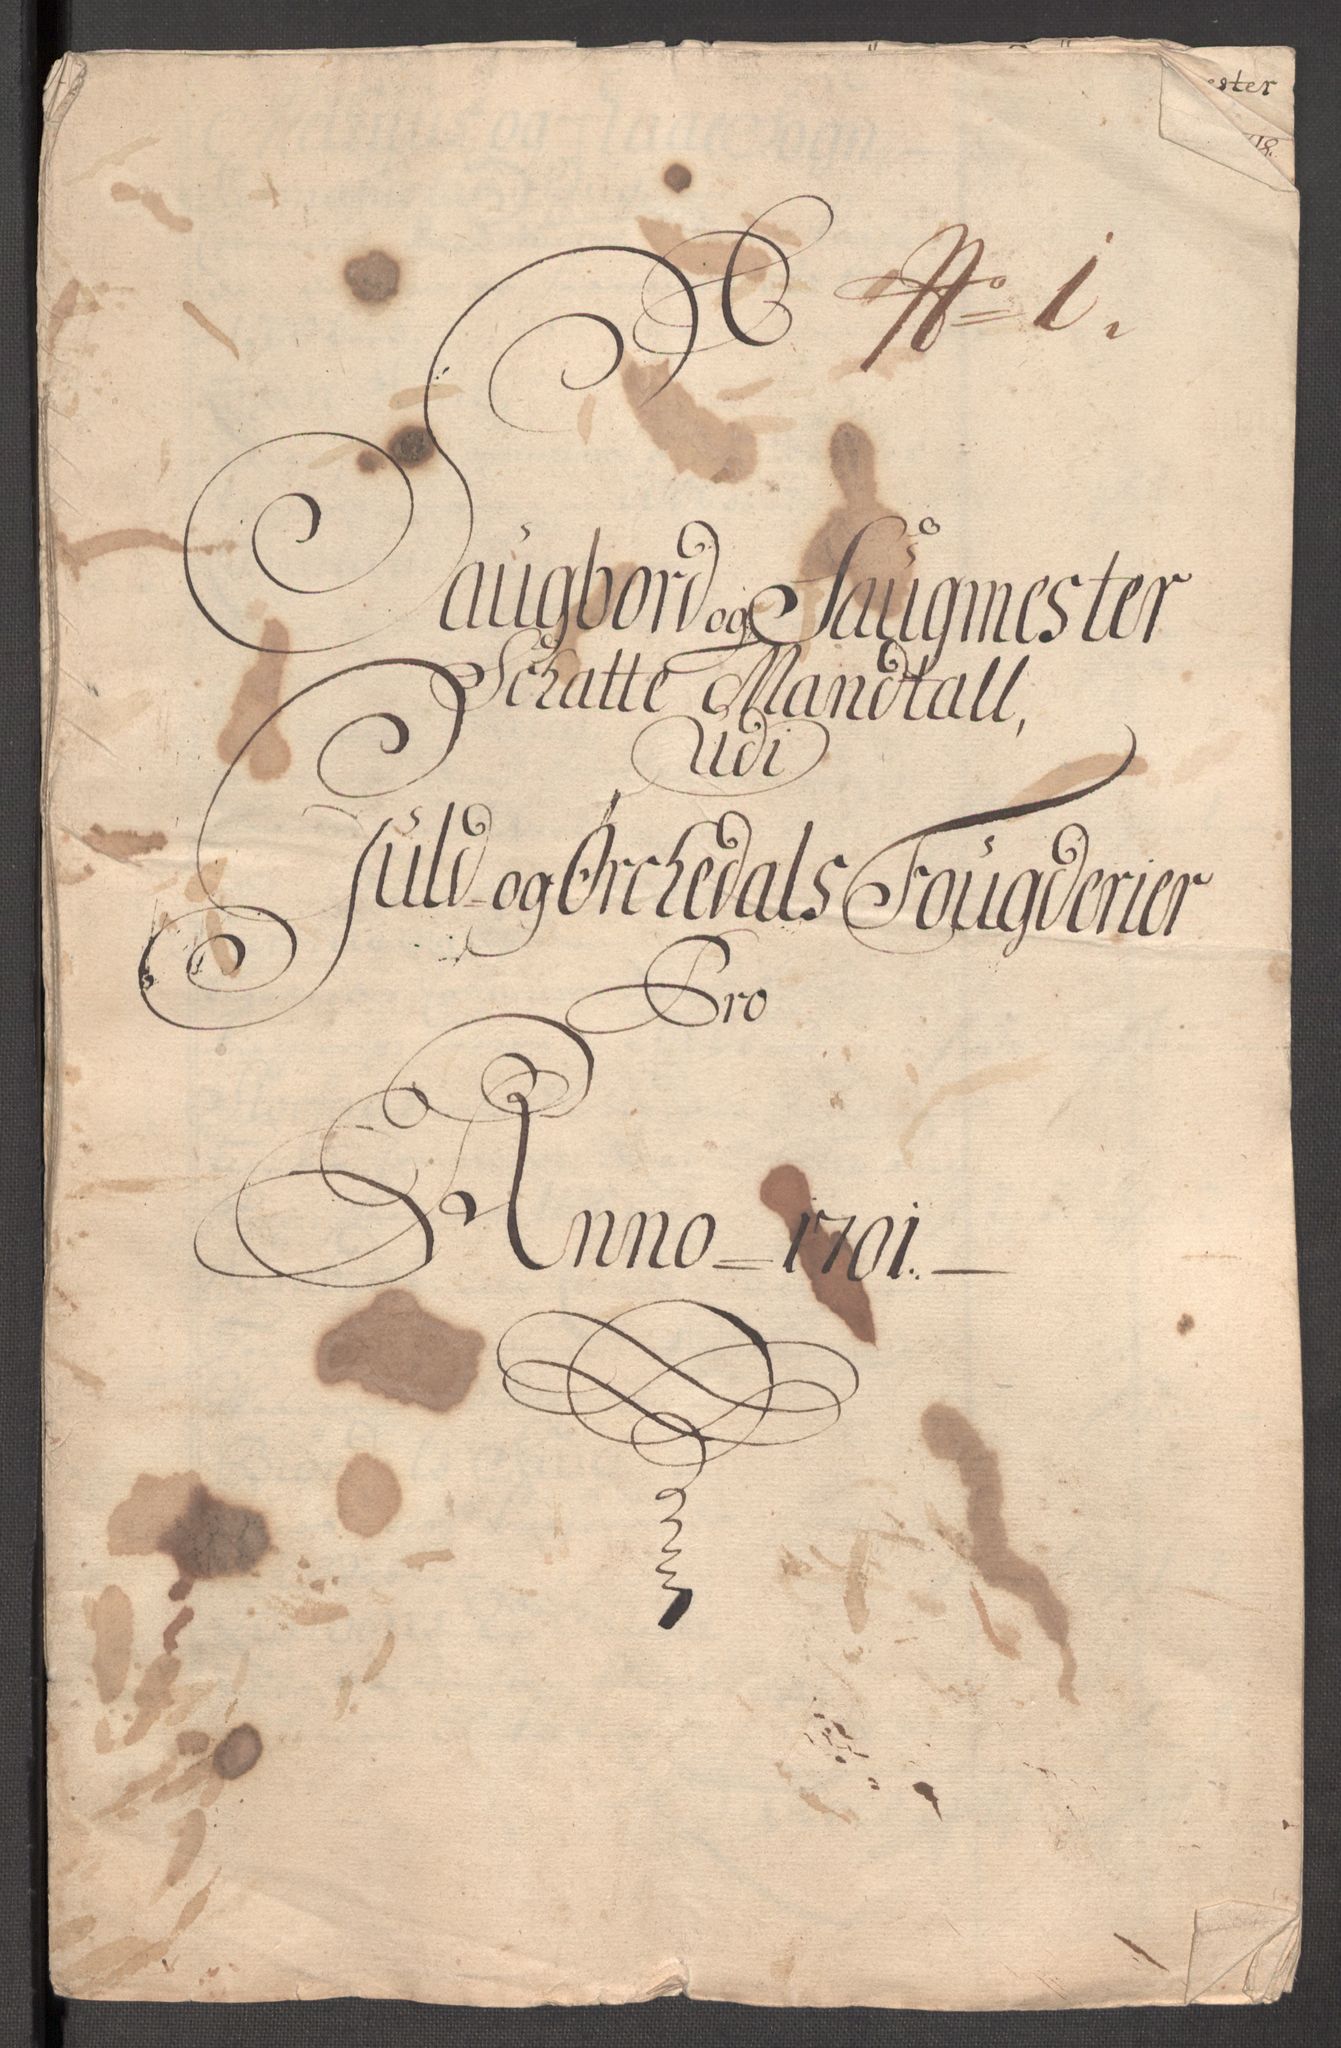 ester
18.
No = 1.
Saugbord og Saugmester
Schatte Mandtall,
Udi
Juld ogØrchedals Fougderier
Pro
Anno = 1701. —